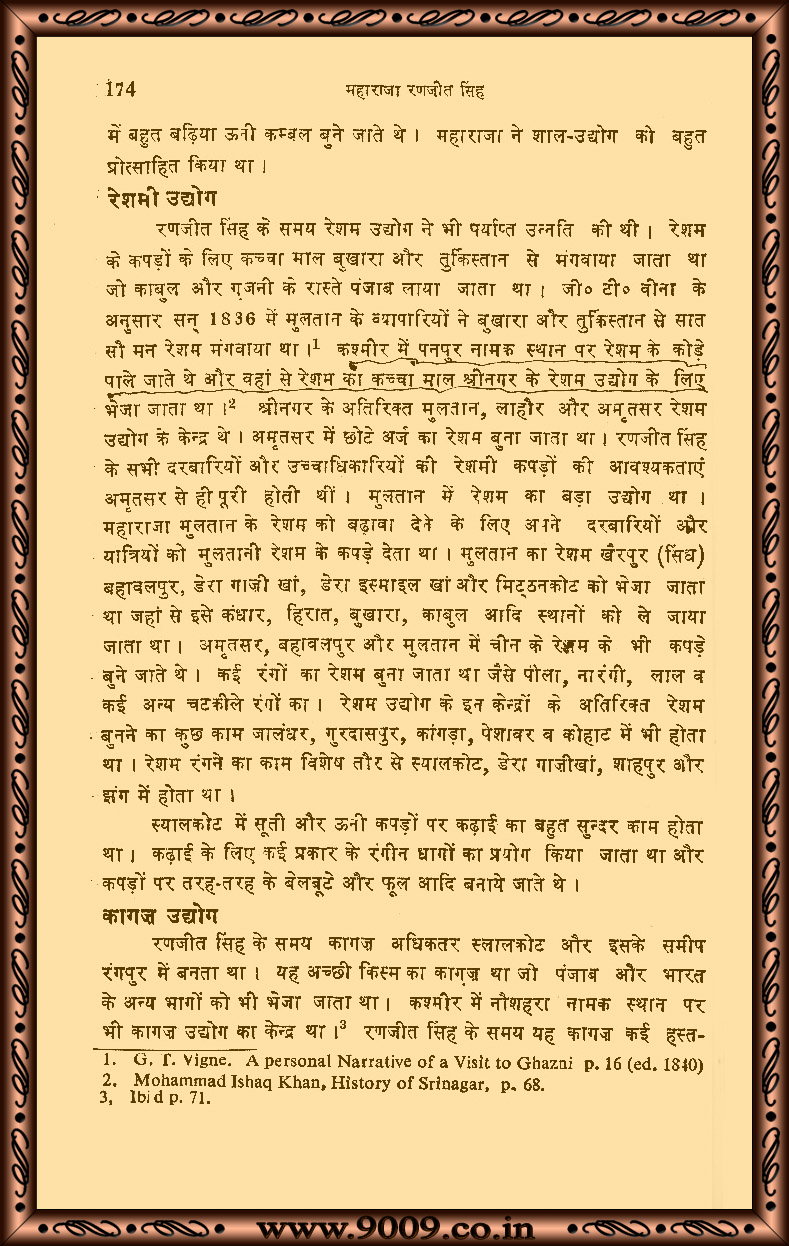 174
महाराजा रणजीत सिंह
में बहुत बढ़िया ऊनी कम्बल बुने जाते थे । महाराजा ने शाल-उद्योग को बहुत
प्रोत्साहित किया था ।
रेशमी उद्योग
रणजीत सिंह के समय रेशम उद्योग ने भी पर्याप्त उन्नति की थी । रेशम
के कपड़ों के लिए कच्चा माल बुखारा और तुर्किस्तान से मंगवाया जाता था
जो काबुल और गज़नी के रास्ते पंजाब लाया जाता था । जी० टी० वीना के
अनुसार सन् 1836 में मुलतान के व्यापारियों ने बुखारा और तुर्किस्तान से सात
सौ मन रेशम मंगवाया था ।1 कश्मीर में पनपुर नामक स्थान पर रेशम के कोड़े
पाले जाते थे और वहां से रेशम का कच्चा माल श्रीनगर के रेशम उद्योग के लिए
भेजा जाता था ।2 श्रीनगर के अतिरिक्त मुलतान, लाहौर और अमृतसर रेशम
उद्योग के केन्द्र थे । अमृतसर में छोटे अर्ज का रेशम बुना जाता था । रणजीत सिंह
के सभी दरबारियों और उच्चाधिकारियों की रेशमी कपड़ों की आवश्यकताएं
अमृतसर से ही पूरी होती थीं । मुलतान में रेशम का बड़ा उद्योग था ।
महाराजा मुलतान के रेशम को बढ़ावा देने के लिए अपने दरबारियों और
यात्रियों को मुलतानी रेशम के कपड़े देता था । मुलतान का रेशम खैरपुर (सिंध)
बहावलपुर, डेरा गाज़ी खां, डेरा इस्माइल खां और मिट्ठनकोट को भेजा जाता
था जहां से इसे कंधार, हिरात, बुखारा, काबुल आदि स्थानों को ले जाया
जाता था । अमृतसर, बहावलपुर और मुलतान में चीन के रेशम के भी कपड़े
बुने जाते थे । कई रंगों का रेशम बुना जाता था जैसे पीला, नारंगी, लाल व
कई अन्य चटकीले रंगों का । रेशम उद्योग के इन केन्द्रों के अतिरिक्त रेशम
बुनने का कुछ काम जालंधर, गुरदासपुर, कांगड़ा, पेशावर व कोहाट में भी होता
था । रेशम रंगने का काम विशेष तौर से स्यालकोट, डेरा गाज़ीखां, शाहपुर और
झंग में होता था ।
स्यालकोट में सूती और ऊनी कपड़ों पर कढ़ाई का बहुत सुन्दर काम होता
था । कढ़ाई के लिए कई प्रकार के रंगीन धागों का प्रयोग किया जाता था और
कपड़ों पर तरह-तरह के बेलबूटे और फूल आदि बनाये जाते थे ।
कागज़ उद्योग
रणजीत सिंह के समय कागज़ अधिकतर स्लालकोट और इसके समीप
रंगपुर में बनता था । यह अच्छी किस्म का कागज़ था जो पंजाब और भारत
के अन्य भागों को भी भेजा जाता था । कश्मीर में नौशहरा नामक स्थान पर
भी कागज़ उद्योग का केन्द्र था ।3 रणजीत सिंह के समय यह कागज़ कई हस्त-
1. G. T. Vigne. A personal Narrative of a Visit to Ghazni p. 16 (ed. 1840)
2. Mohammad Ishaq Khan, History of Srinagar, p. 68.
3, Ibid p. 71.
www.9009.co.in